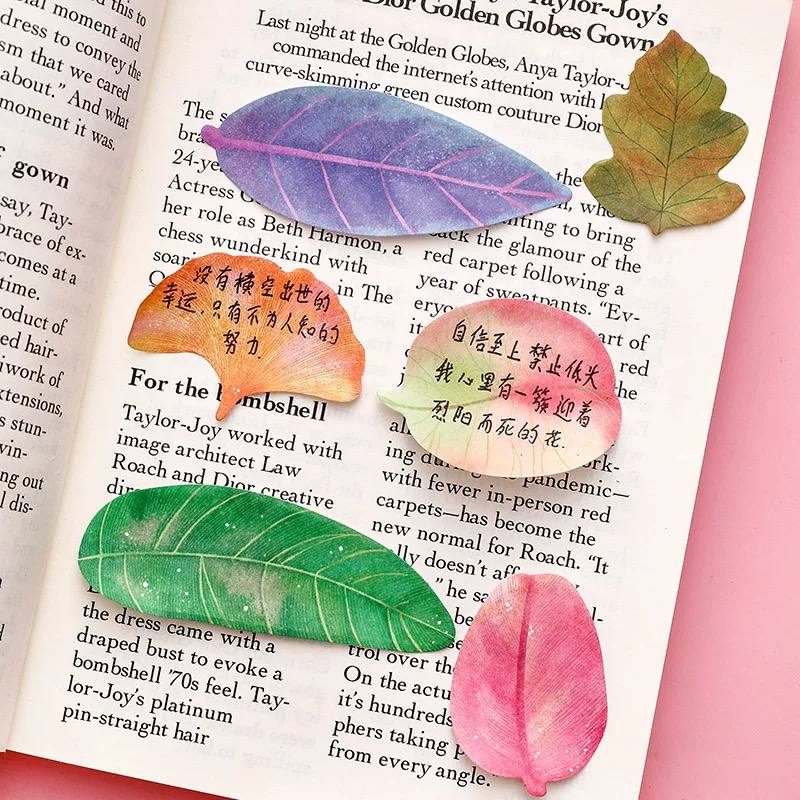 this to
cial moment and
dress to convey the
sm that we cared
about.” And what
moment it was.
gown
say, Tay-
brace of ex-
comes at a
time.
roduct of
ed hair-
work of
xtensions,
s stun-
win-
ng out
l dis-
Taylor-Joy’s
Dior Golden Globes Gown
Last night at the Golden Globes, Anya Taylor-J
commanded the internet’s attention with
curve-skimming green custom couture Dior
The s
bra
24-ye
Actress G
her role as Beth Harmon, a
chess wunderkind with
soari
in The
For the bombshell
Taylor-Joy worked with
image architect Law
Roach and Dior creative
dir
the dress came with a
draped bust to evoke a
bombshell ’70s feel. Tay-
lor-Joy’s platinum
pin-straight hair
the
who
nting to bring
back the glamour of the
red carpet following a
year of sweatpants. “Ev-
eryo
art of
it
red
the
all
ork-
ing during the pandemic—
with fewer in-person red
carpets—has become the
new normal for Roach. “It
lly doesn’t aff
” he sa
l-
be
trol over the
On the actu
it’s hundreds
phers taking p
from every angle.”
没有横空出世的
幸运,只有不为人知的
努力.
自信至上 禁止低头
我心里有一簇迎着
烈阳而死的花.